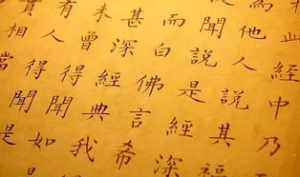 此經中乃
為他人說其福
聞說是經深
而白佛言希
甚深經典我
未曾得聞如
有人得聞是
實相當